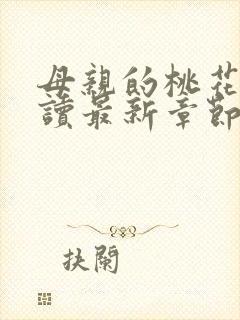 母親的桃花
讀最新章節
抉闌